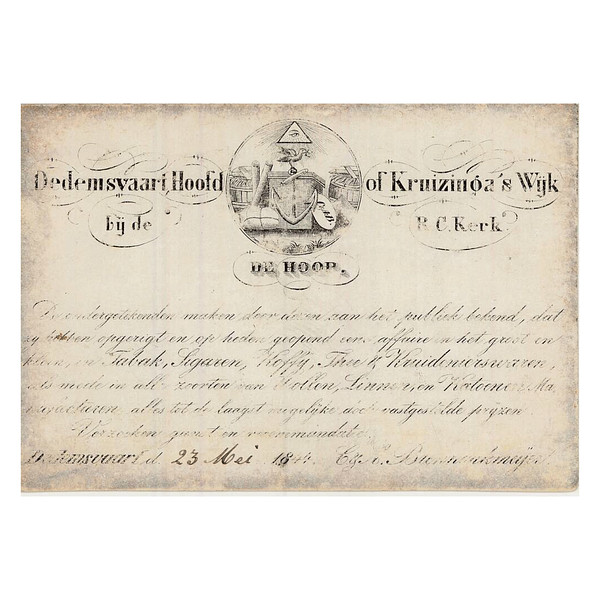 Dedemsvaart, Hoofd of Kruizinga's Wijk
bij de R. C. Kerk.
DE HOOP.
De ondergetekenden maken door dezen aan het publiek bekend, dat
zy hebben opgerigt en op heden geopend eene affaire in het groot en
klein, in Tabak, Sigaren, Koffy, Thee & Kruidenierswaren,
als mede in alle zoorten van Wollen, Linnen, en Katoenen Ma-
nufacturen, alles tot de laagst mogelijke doch vastgestelde pryzen.
Verzoeken gunst en recommandatie.
Dedemsvaart d. 23 Mei